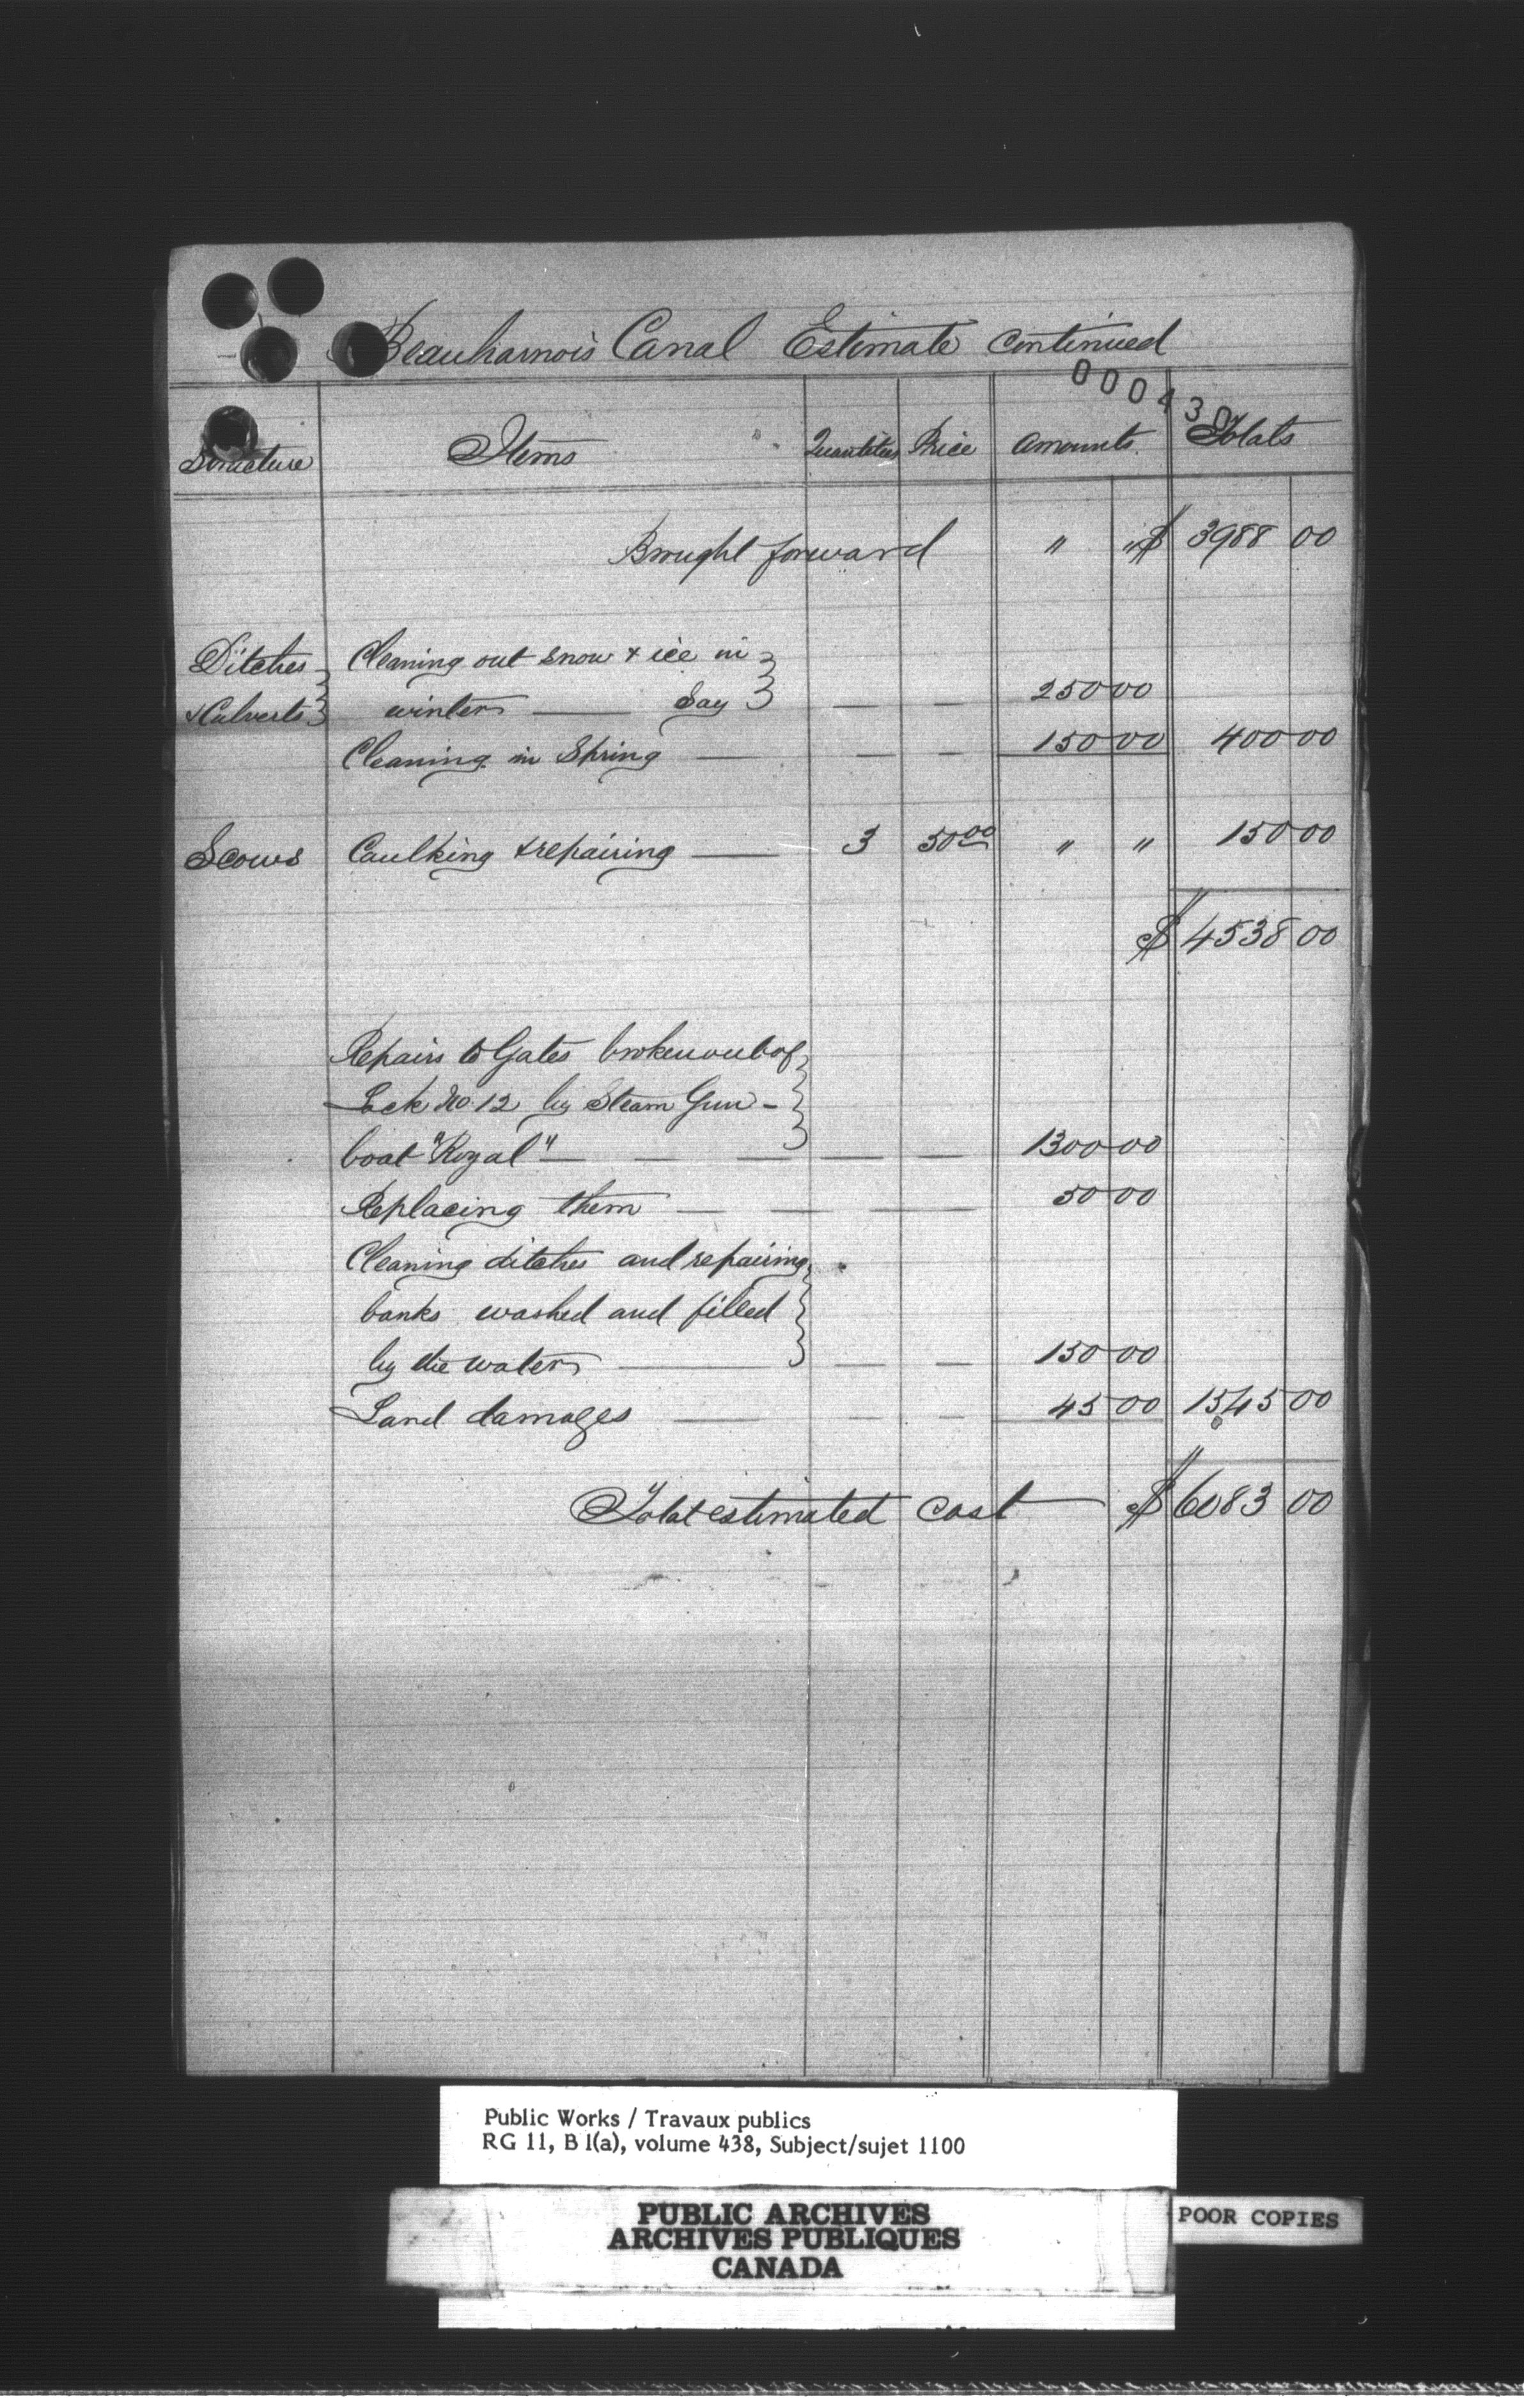 Beauharnois Canal Estimate continued
000430
Structure Items Quantities Price Amounts Totals
Brought forward " " $ 3988 00
Ditches Cleaning out snow & ice in
& Culverts winter — Say — — 250 00
Cleaning in Spring — — — 150 00 400 00
Scows Caulking & repairing — 3 50 00 " " 150 00
$ 4538 00
Repairs to Gates broken out of
Lock No. 12 by Steam Gun-
boat "Royal" — — — — — 1300 00
Replacing them — — — — 50 00
Cleaning ditches and repairing
banks washed and filled
by the water — — — 150 00
Land damages — — — 45 00 1545 00
Total estimated cost — $ 6083 00
Public Works / Travaux publics
RG 11, B 1(a), volume 438, Subject/sujet 1100
PUBLIC ARCHIVES
ARCHIVES PUBLIQUES
CANADA
POOR COPIES